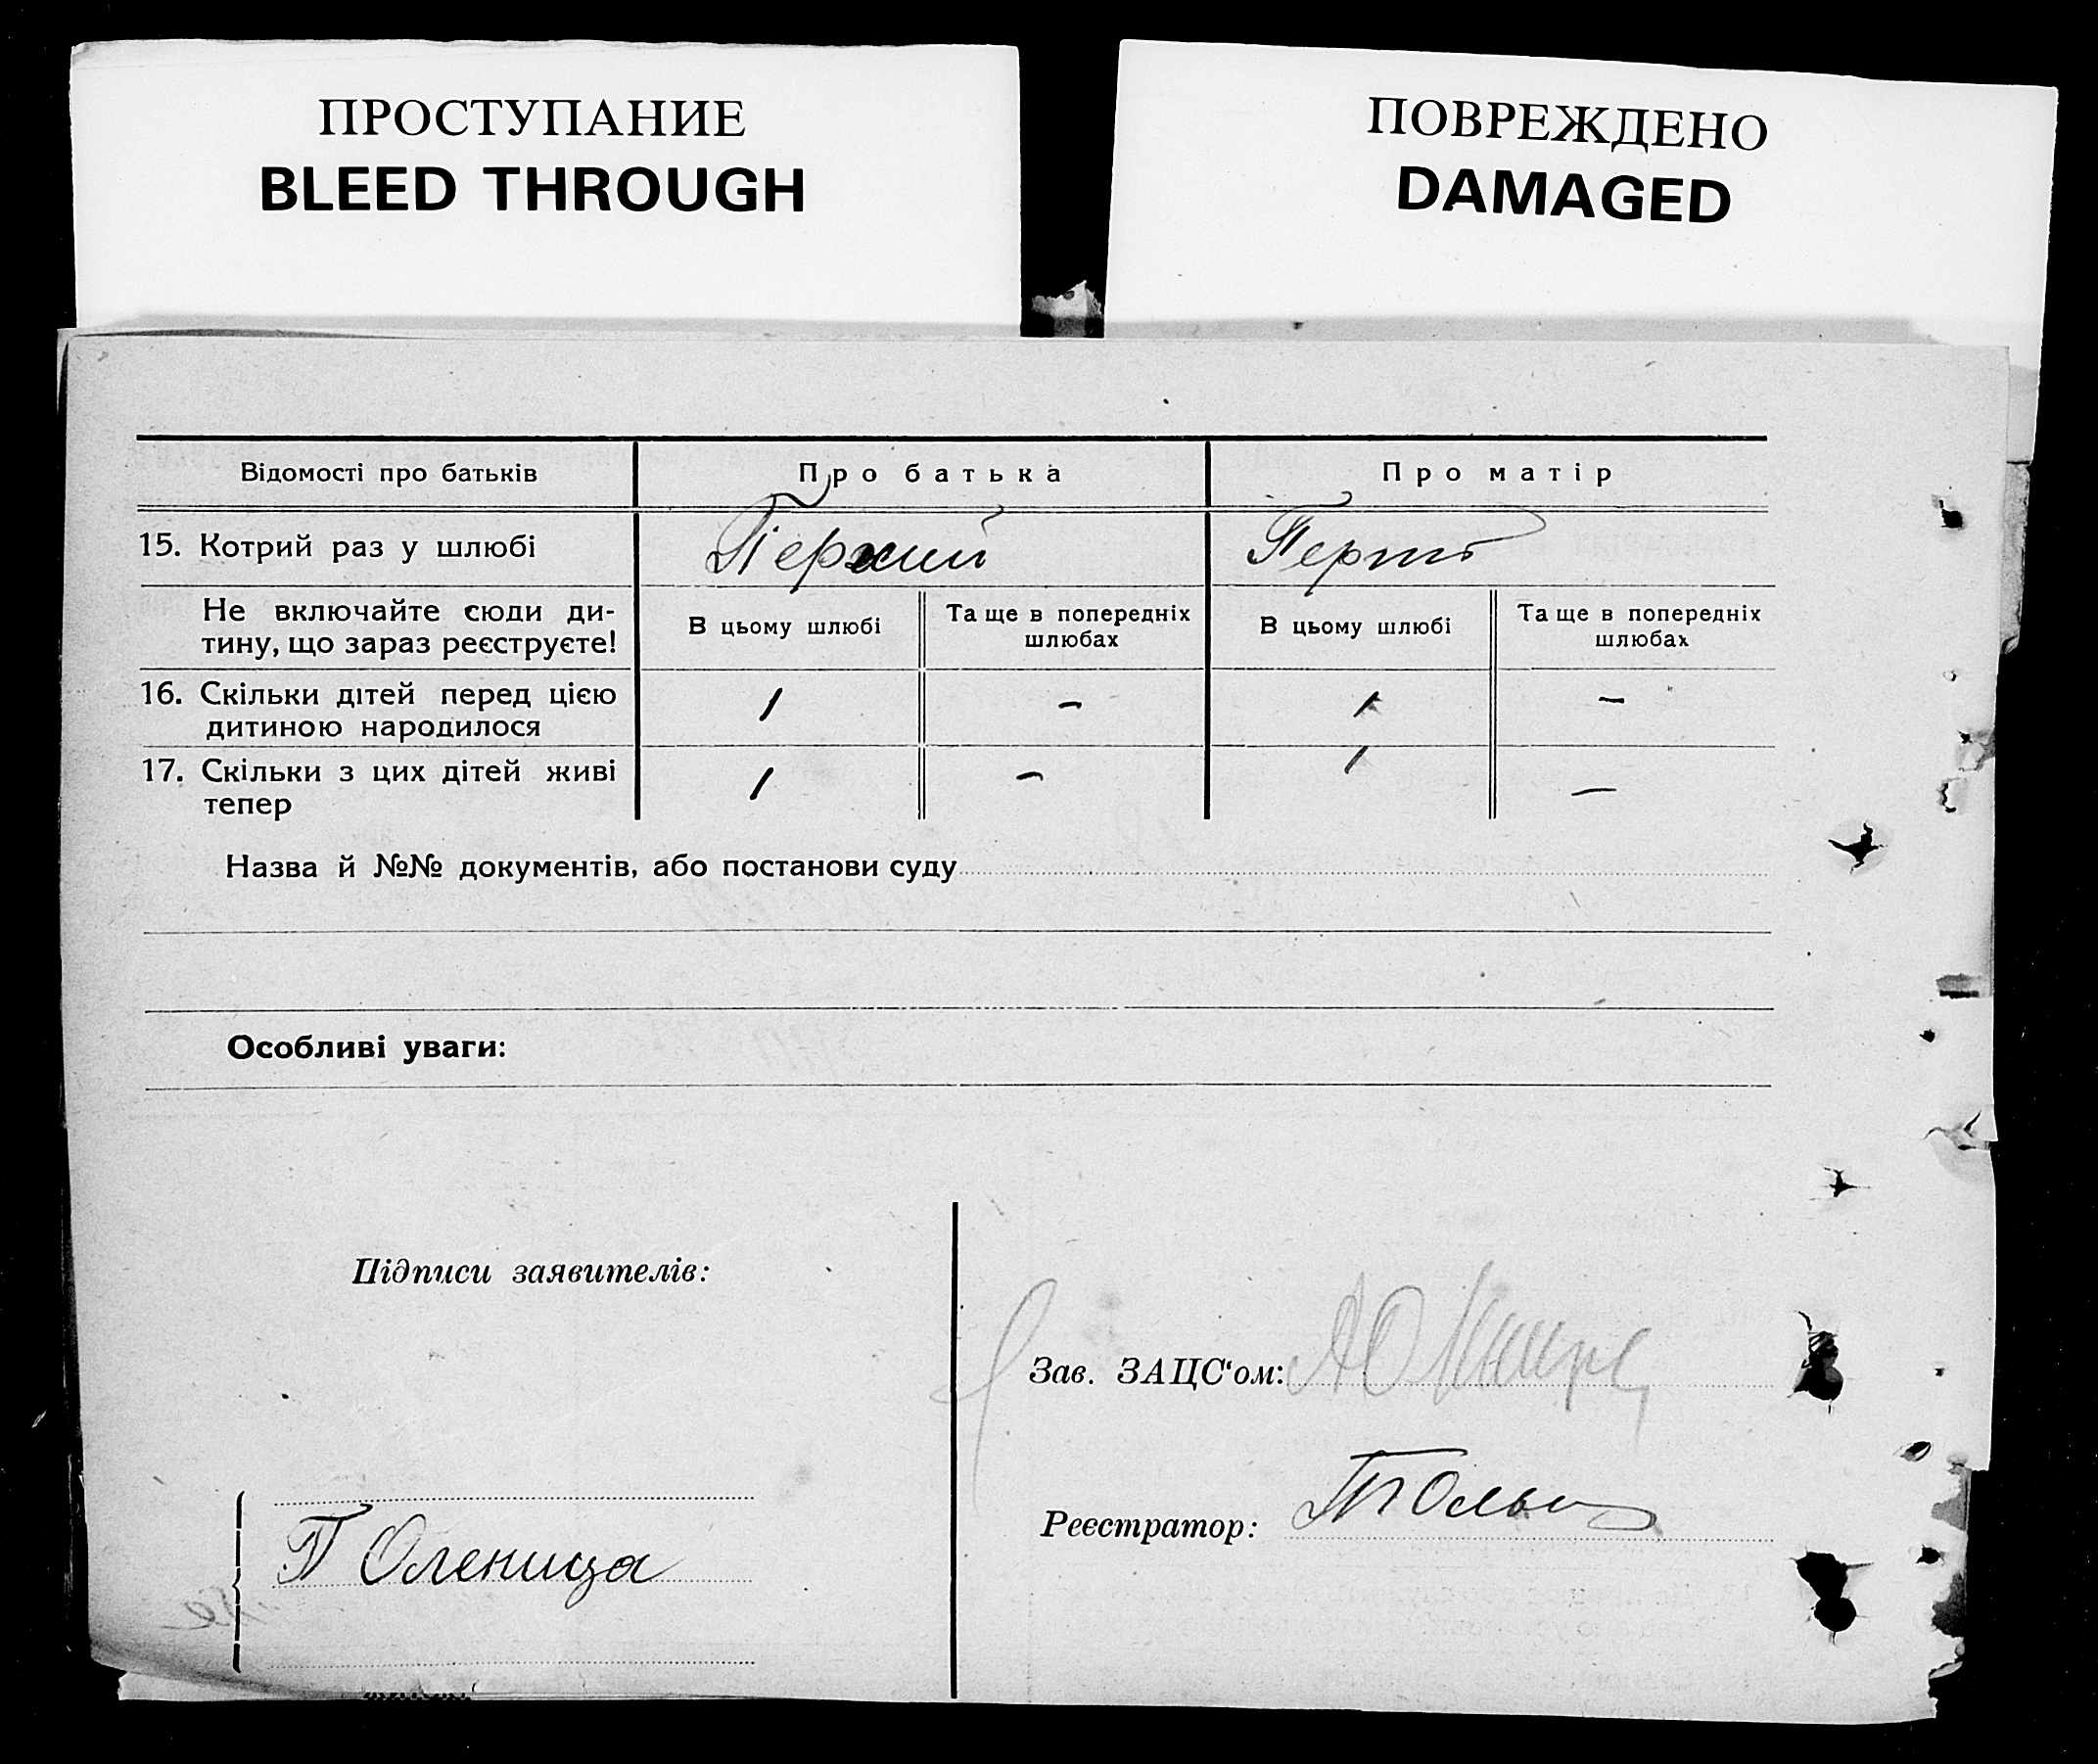 ПРОСТУПАНИЕ
BLEED THROUGH
ПОВРЕЖДЕНО
DAMAGED
Відомості про батьків
Про батька
Про матір
15. Котрий раз у шлюбі
Перший
Не включайте сюди ди-
тину, що зараз реєструєте!
В цьому шлюбі
Та ще в попередніх
шлюбах
В цьому шлюбі
Та ще в попередніх
шлюбах
16. Скільки дітей перед цією
дитиною народилося
1
-
1
-
17. Скільки з цих дітей живі
тепер
1
-
1
-
Назва й №№ документів, або постанови суду
Особливі уваги:
Підписи заявителів:
П Оленица
Зав. ЗАЦС‘ом:
Реєстратор: